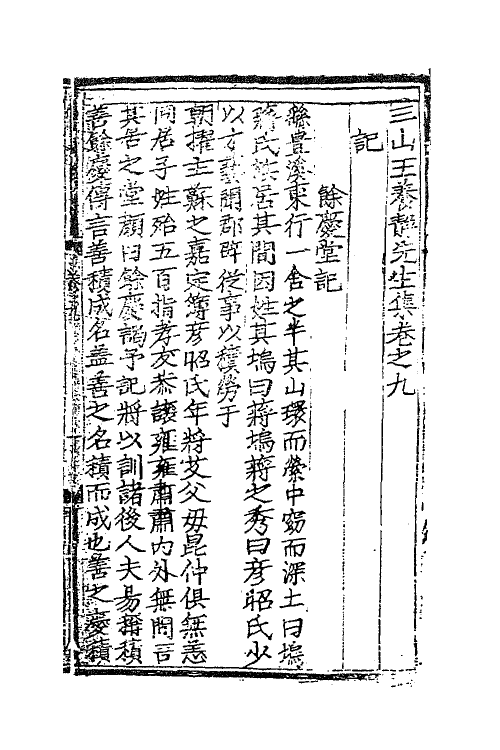 三山王養靜先生集卷之九
記
餘慶堂記
繇豊溪東行一舍之半其山環而縈中窈而深土曰塢
蔣氏族居其間因姓其塢曰蔣塢蔣之秀曰彦昭氏少
以方藝聞郡辟從事以積勞于
朝擢主蘇之嘉定簿彦昭氏年將艾父毋昆仲俱無恙
同居子姓殆五百指孝友恭謙雍雍肅肅内外無間言
其居之堂顔曰餘慶謁予記將以訓諸後人夫易稱積
善餘慶傳言善積成名盖善之名積而成也善之慶積